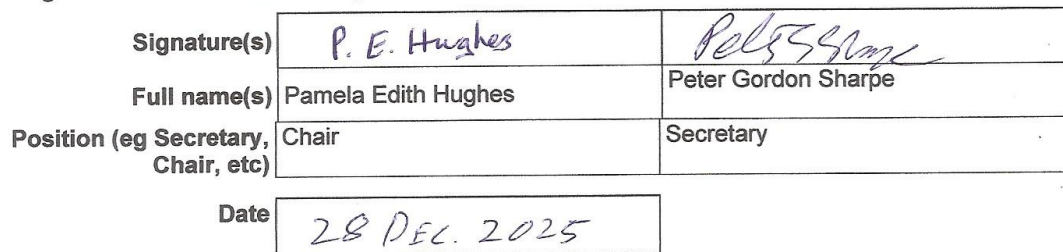 Signature(s) P. E. Hughes
Full name(s) Pamela Edith Hughes Peter Gordon Sharpe
Position (eg Secretary, Chair Secretary
Chair, etc)
Date 28 DEC. 2025